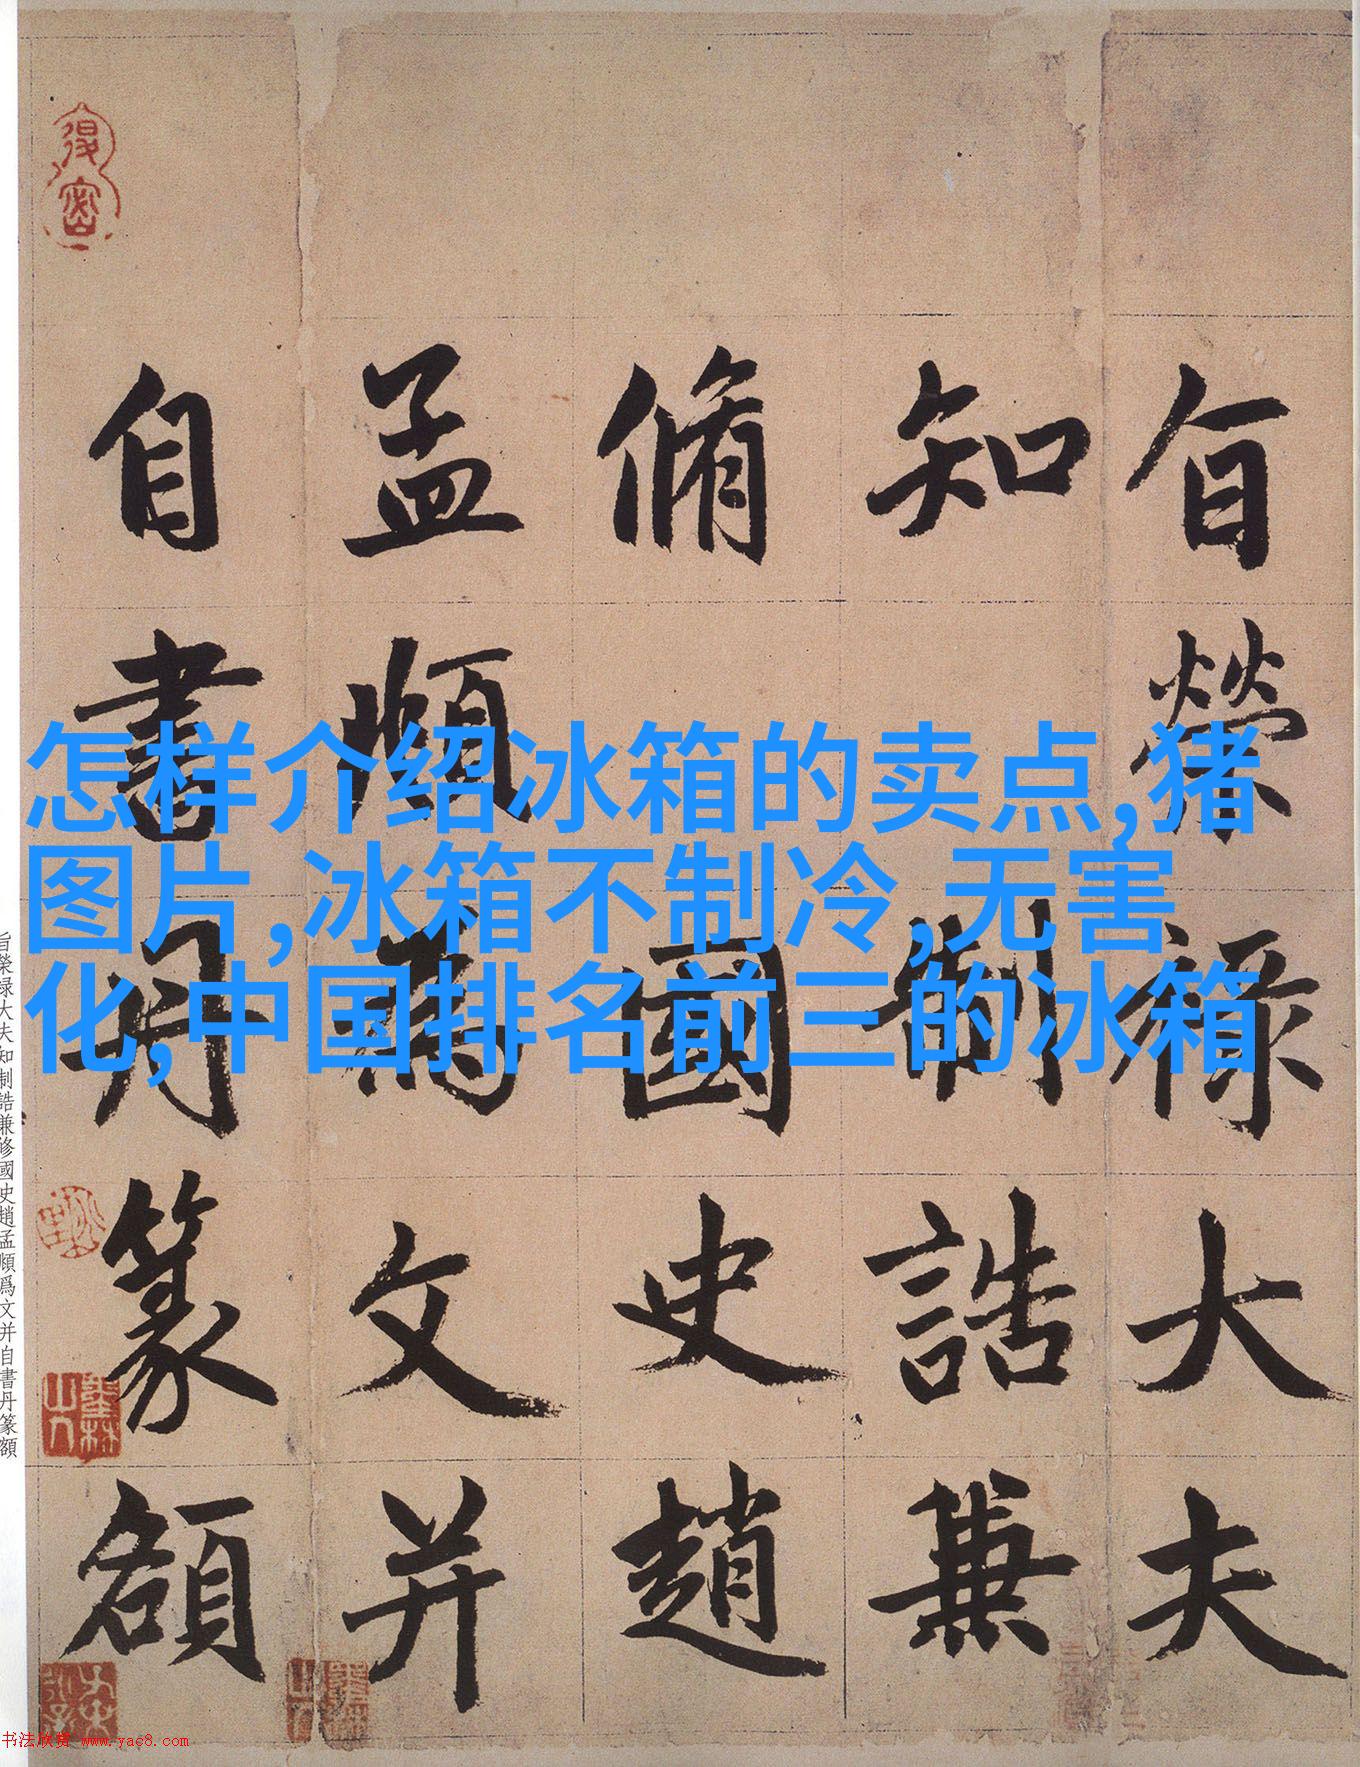 旨榮禄大夫
知制誥兼
脩國史趙
孟頫爲文并
自書丹篆額
怎样介绍冰箱的卖点,猪
图片,冰箱不制冷,无害
化,中国排名前三的冰箱
旨榮禄大夫知制誥兼修國史趙孟頫爲文并自書丹篆額
书法欣赏 www.yac8.com